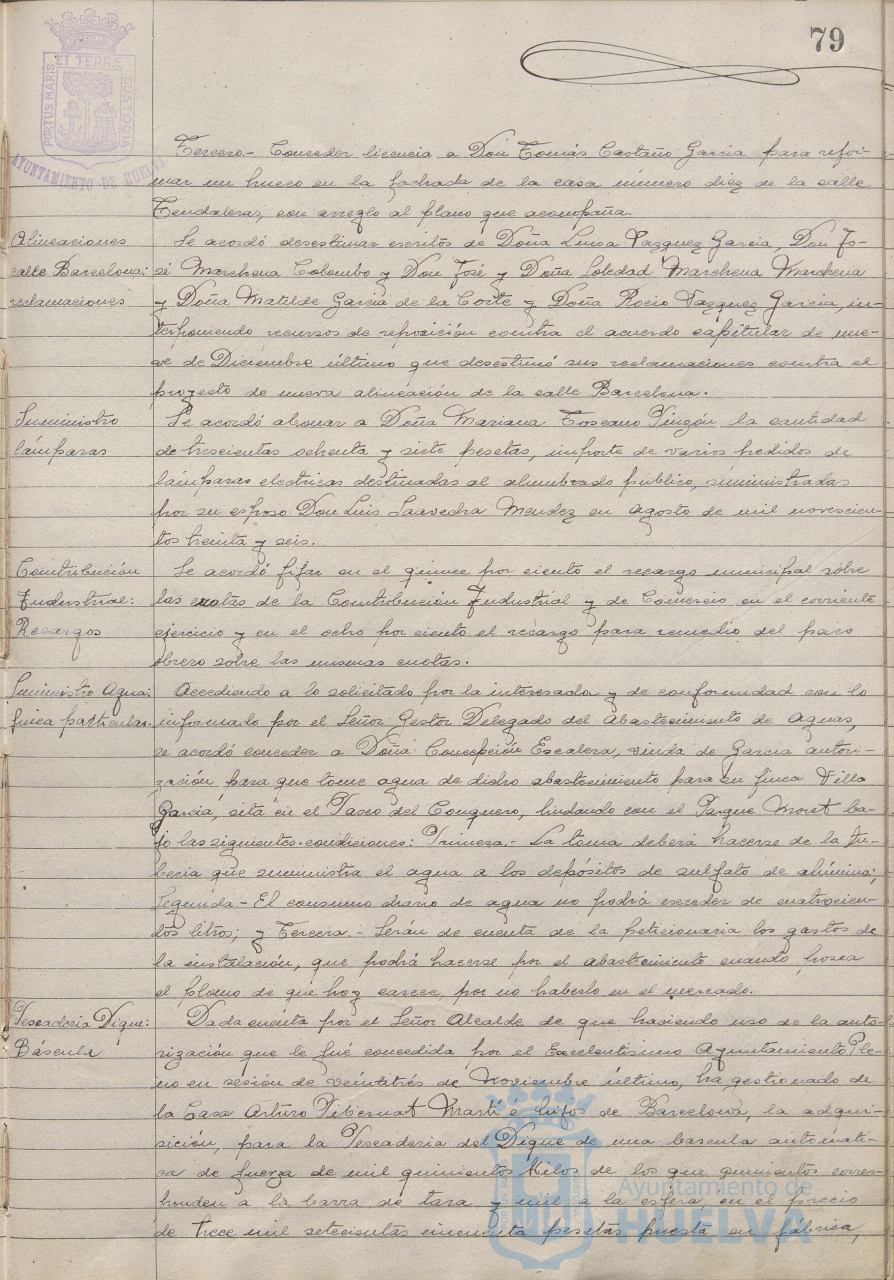 79
PORTUS MARIS ET TERRÆ CUSTODIA
AYUNTAMIENTO DE HUELVA
Tercero.- Conceder licencia a Don Tomás Castaño Garcia para refor-
mar un hueco en la fachada de la casa número diez de la calle
Tendaleras, con arreglo al plano que acompaña.
Alineaciones
calle Barcelona:
reclamaciones
Se acordó desestimar escritos de Doña Luisa Vazquez Garcia, Don Jo-
sé Marchena Colombo y Don José y Doña Soledad Marchena Marchena
y Doña Matilde Garcia de la Corte y Doña Rocio Vazquez Garcia, in-
terponiendo recursos de reposición contra el acuerdo capitular de nue-
ve de Diciembre último que desestimó sus reclamaciones contra el
proyecto de nueva alineación de la calle Barcelona.
Suministro
lámparas
Se acordó abonar a Doña Mariana Toscano Pinzón la cantidad
de trescientas ochenta y siete pesetas, importe de varios pedidos de
lámparas electricas destinadas al alumbrado publico, suministradas
por su esposo Don Luis Saavedra Mendez en agosto de mil novescien-
tos treinta y seis.
Contribución
Industrial:
Recargos
Se acordó fijar en el quince por ciento el recargo municipal sobre
las cuotas de la Contribución Industrial y de Comercio en el corriente
ejercicio y en el ocho por ciento el recargo para remedio del paro
obrero sobre las mismas cuotas.
Suministro Agua:
finca particular.
Accediendo a lo solicitado por la interesada y de conformidad con lo
informado por el Señor Gestor Delegado del Abastecimiento de Aguas,
se acordó conceder a Doña Concepción Escalera, viuda de Garcia autori-
zación para que tome agua de dicho abastecimiento para su finca Villa
Garcia, sita en el Paseo del Conquero, lindando con el Parque Moret ba-
jo las siguientes condiciones: Primera.- La toma deberá hacerse de la tu-
beria que suministra el agua a los depósitos de sulfato de alúmina;
Segunda- El consumo diario de agua no podrá exceder de cuatrocien-
tos litros; y Tercera.- Serán de cuenta de la peticionaria los gastos de
la instalación, que podrá hacerse por el abastecimiento cuando posea
el plomo de que hoy carece, por no haberlo en el mercado.
Pescaderia Dique:
Báscula
Dada cuenta por el Señor Alcalde de que haciendo uso de la auto-
rización que le fué concedida por el Excelentisimo Ayuntamiento Ple-
no en sesión de veintitrés de Noviembre último, ha gestionado de
la Casa Arturo Pibernat Martí é hijos de Barcelona, la adqui-
sición, para la Pescaderia del Dique de una bascula automáti-
ca de fuerza de mil quinientos kilos de los que quinientos corres-
ponden a la barra de tara y mil a la esfera, en el precio
de trece mil setecientas cincuenta pesetas puesta en fábrica,
Ayuntamiento de
HUELVA